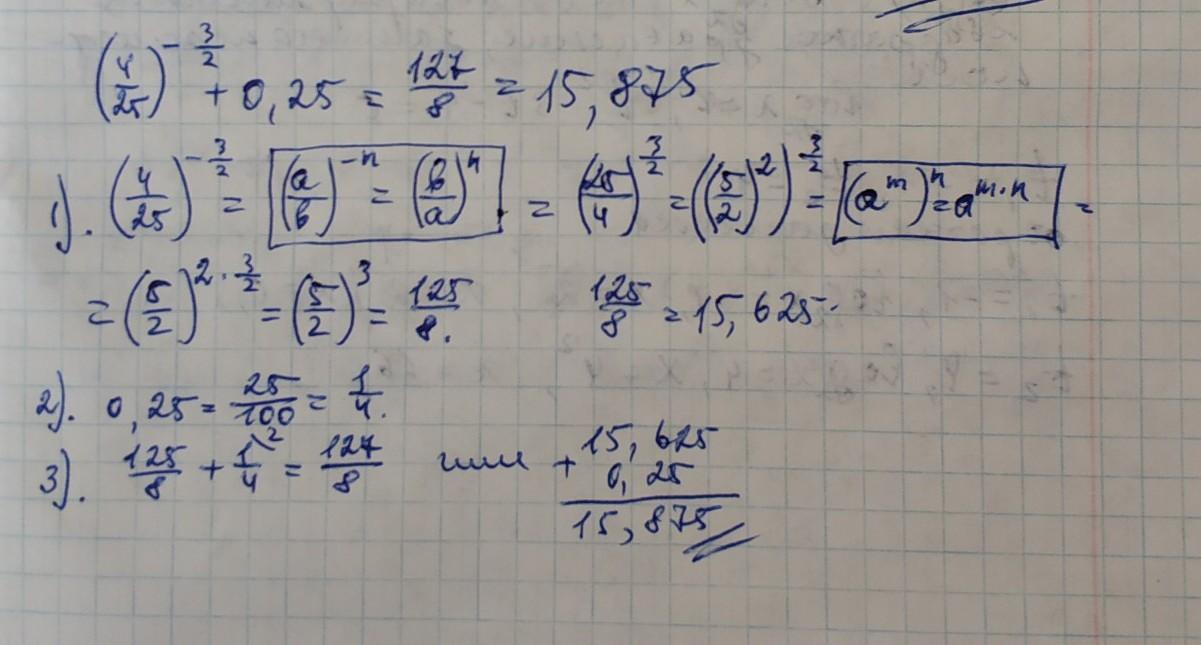 (4/25)^(-3/2) + 0,25 = 127/8 = 15,875
1). (4/25)^(-3/2) = (a/b)^(-n) = (b/a)^n = (25/4)^(3/2) = ((5/2)^2)^(3/2) = (a^m)^n = a^(m·n) =
= (5/2)^(2·3/2) = (5/2)^3 = 125/8. 125/8 = 15,625
2). 0,25 = 25/100 = 1/4.
3). 125/8 + 1\2/4 = 127/8 или + 15,625
0,25
15,875